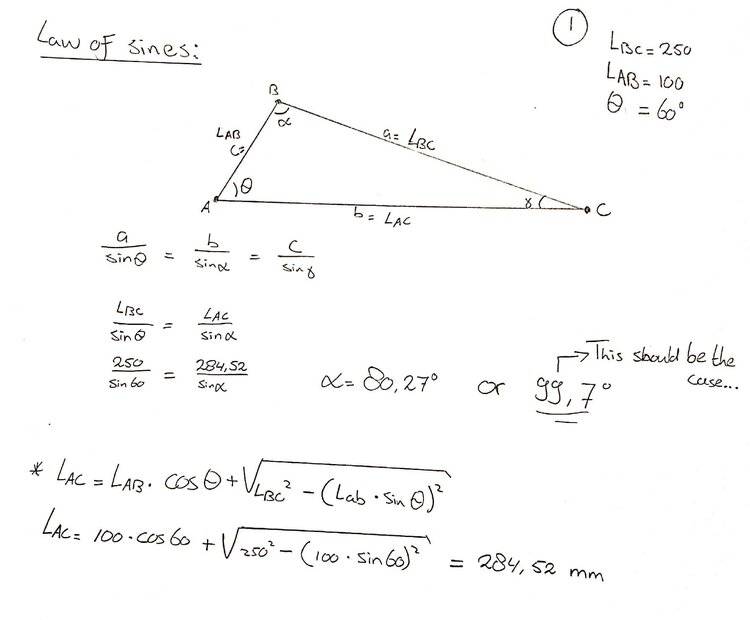 Law of sines:
1
LBC = 250
LAB = 100
θ = 60°
B
α
LAB
C=
a = LBC
A
θ
b = LAC
γ
C
a/sinθ = b/sinα = c/sinγ
LBC/sinθ = LAC/sinα
250/sin60 = 284,52/sinα
α = 80,27° or 99,7°
→ This should be the
case...
* LAC = LAB · cosθ + √LBC² - (Lab · sin θ)²
LAC = 100 · cos60 + √250² - (100 · sin60)² = 284,52 mm